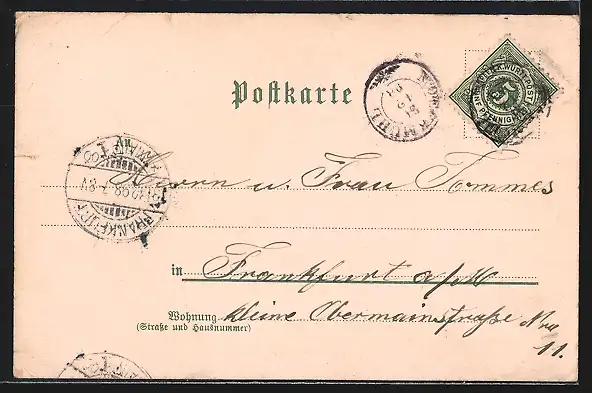 Postkarte
5
PFENNIG
An
Herrn u. Frau Tommes
in Frankfurt a/M
Wohnung kleine Obermainstraße Nro
(Straße und Hausnummer)
11.
FRANKFURT